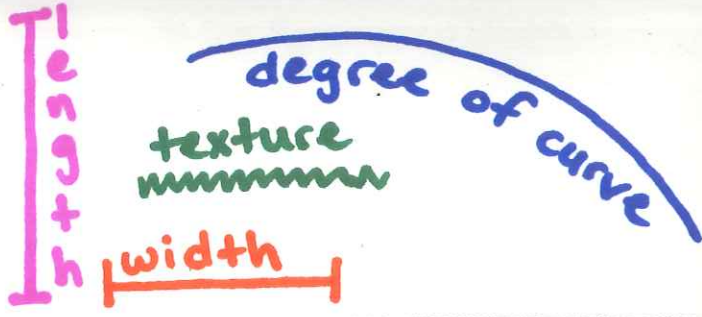 length
degree of curve
texture
width